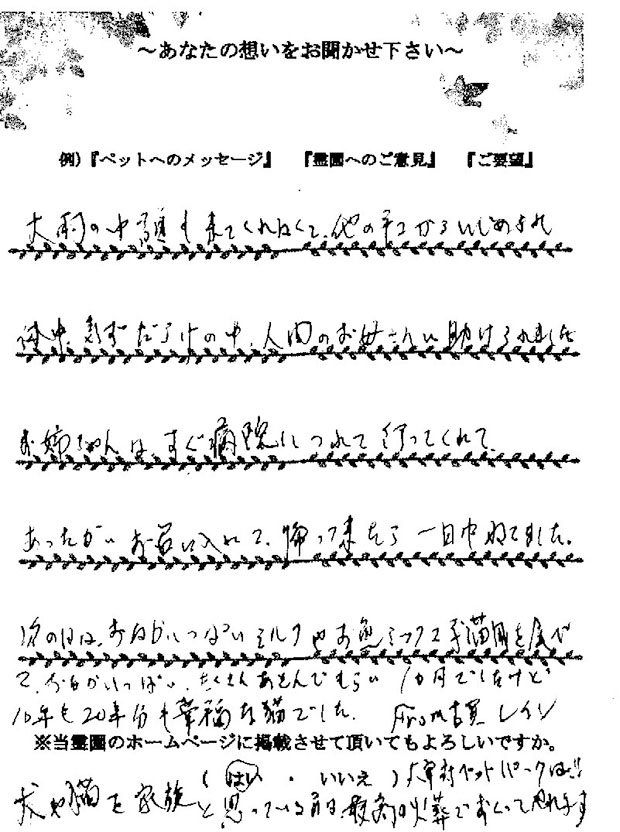 ～あなたの想いをお聞かせ下さい～
例）『ペットへのメッセージ』　『霊園へのご意見』　『ご要望』
大雨の中 親も来てくれなくて、他の子からいじめられ
体中、きずだらけの中、人間のお母さんに助けられました
お姉ちゃんは、すぐ病院につれて行ってくれて
あったかいお召に入れて、帰って来たら 一日中ねてました。
次の日は、おなかいっぱいミルクやお魚ミックス子猫用を食べ
て、お腹いっぱい、たくさんあそんでもらい 1ヵ月でしたけど
10年も20年分も幸福な猫でした。 From レイン
※当霊園のホームページに掲載させて頂いてもよろしいですか。
（ はい ・ いいえ ） ペットパークは!!
犬や猫を家族と思っている 最高の火葬でおくって